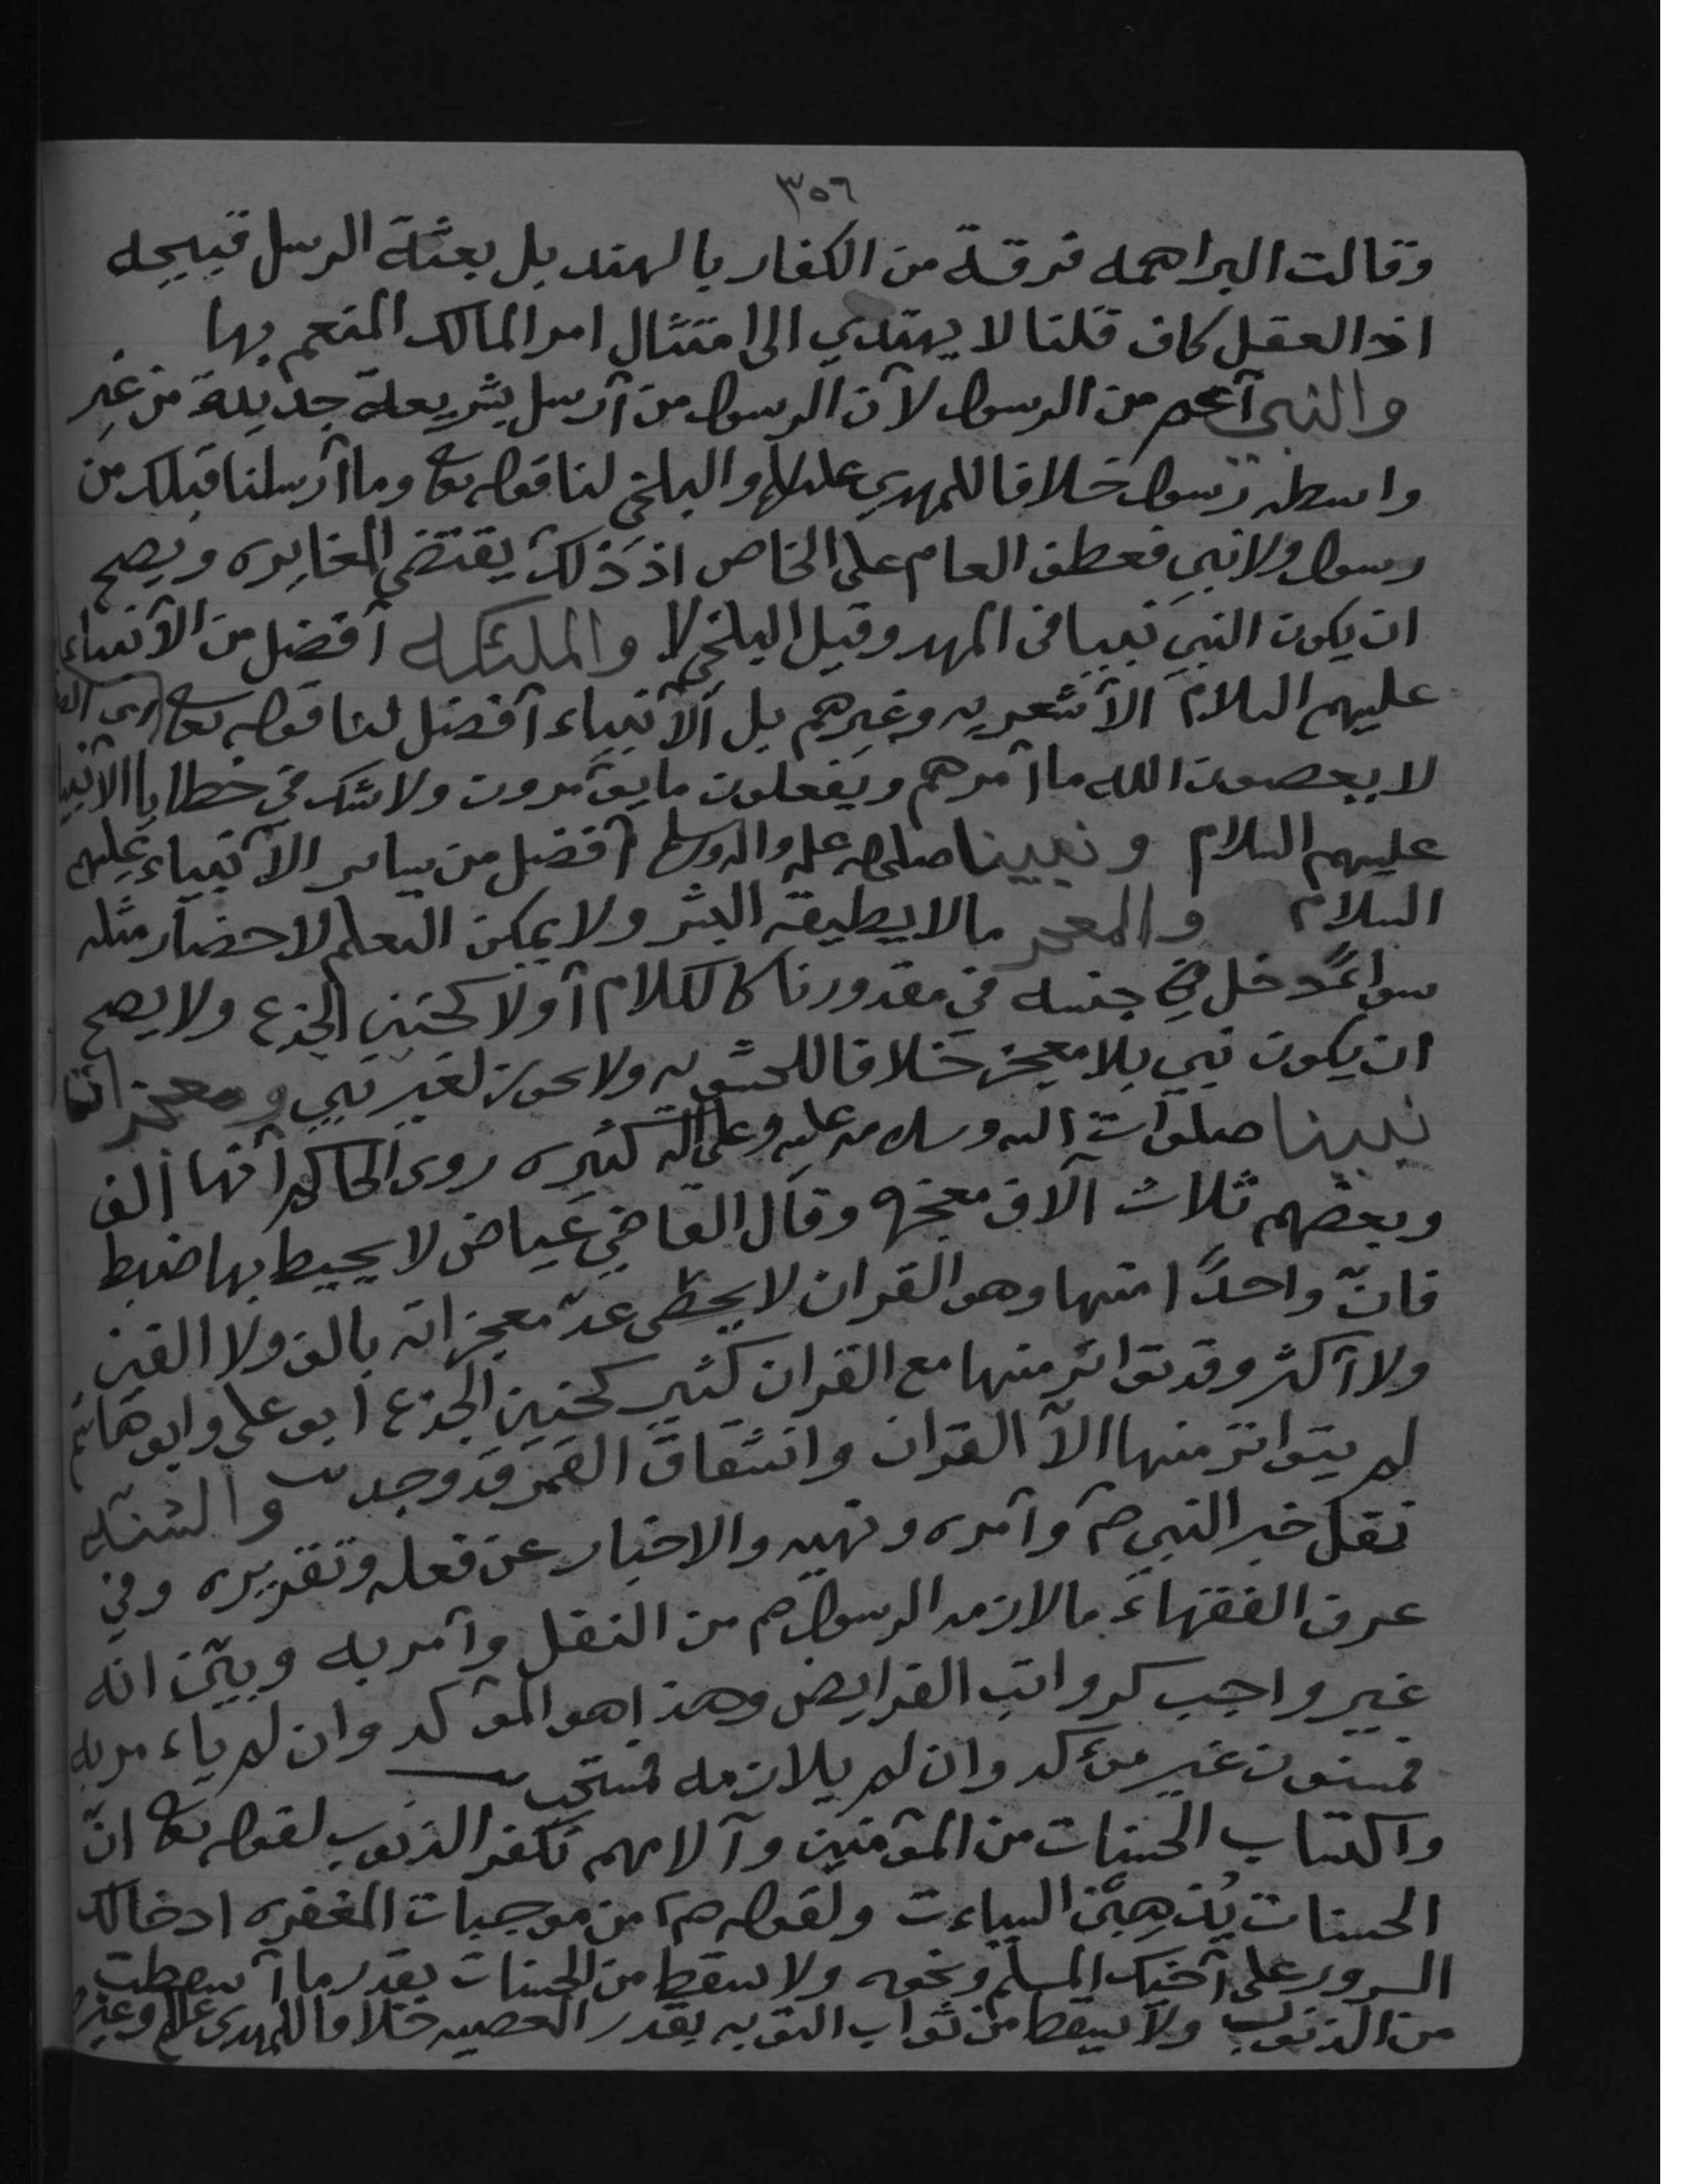 ٣٥٦
وقالت البراهمه فرقة من الكفار بالهند بل بعثة الرسل قبيحه
اذ العقل كاف قلنا لا يهتدي الى امتثال امر المالك المنعم بها
والنبي أعم من الرسول لأن الرسول من أرسل بشريعة جديدة من غير
واسطه رسول خلافا للمهدي عليلم والبلخي لنا قوله تعا وما أرسلنا قبلك من
رسول ولا نبي فعطف العام على الخاص اذ ذلك يقتضي المغايره ويصح
ان يكون النبي نبيا في المهد وقيل البلخي لا والملئكه أفضل من الأنبياء
عليهم السلام الأشعريه وغيرهم بل الأنبياء أفضل لنا قوله تعا
لا يعصون الله ما أمرهم ويفعلون ما يؤمرون ولا شك في خطايا الانبيا
عليهم السلام ونبينا صلى الله عليه واله وسلم أفضل من ساير الأنبياء عليهم
السلام والمعجز ما لا يطيقه البشر ولا يمكن التعلم لاحضار مثله
سواءً دخل في جنسه في مقدورنا كالكلام أو لا كحنين الجذع ولا يصح
ان يكون نبي بلا معجز خلافا للحشويه ولا يجوز لغير نبي ومعجزات
نبينا صلوات الله وسلامه عليه وعلى آله كثيره روى الحاكم أنها ألف
وبعضهم ثلاث آلاف معجزه وقال القاضي عياض لا يحيط بها ضبط
فانّ واحدًا منها وهو القران لا يحصى عدّ معجزاته بالف ولا الفين
ولا أكثر وقد تواتر منها مع القران كثير كحنين الجذع ابو علي وابو هاشم
لم يتواتر منها الاّ القران وانشقاق القمر قد وجد والسنّه
نقل خبر النبي صم وأمره ونهيه والاخبار عن فعله وتقريره وفي
عرف الفقهاء ما لازمه الرسول صم من النفل وأمر به وبيّن انه
غير واجب كرواتب الفرايض وهذا هو المؤكد وان لم ياءمر به
فمسنون غير مؤكد وان لم يلازمه فمستحب
واكتساب الحسنات من المؤمنين وآلامهم تكفر الذنوب لقوله تعا انّ
الحسنات يُذهِبْنَ السياءت ولقوله صم من موجبات المغفره ادخالك
السرور على أخيك المسلم ونحوه ولا يسقط من الحسنات بقدر ما أسقطت
من الذنوب ولا يسقط من ثواب التوبه بقدر المعصيه خلافا للمهدي علم وغيره